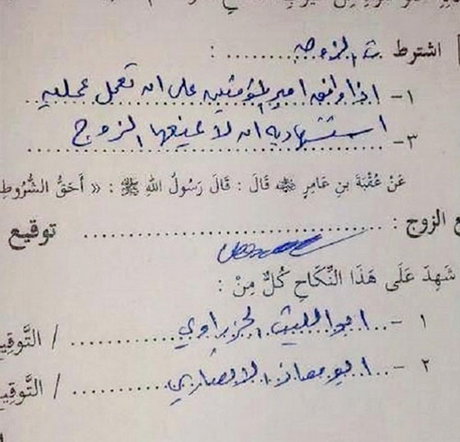 اشترطت الزوجه :
١- اذا وافق امير المؤمنين على ان تعمل عمليه
٣- استشهاديه ان لا يمنعها الزوج
عَنْ عُقْبَةَ بنِ عَامِرٍ ﷺ قَالَ : قَالَ رَسُولُ اللهِ ﷺ : « أَحَقُّ الشُّرُوطِ
ع الزوج : .................... توقيع
شَهِدَ عَلَى هَذَا النِّكَاحِ كُلٌّ مِنْ :
١ -.. ابو الليث الجزراوي ...... / التَّوقِي
٢ -.. ابو معاذ الانصاري ...... / التَّوقِي